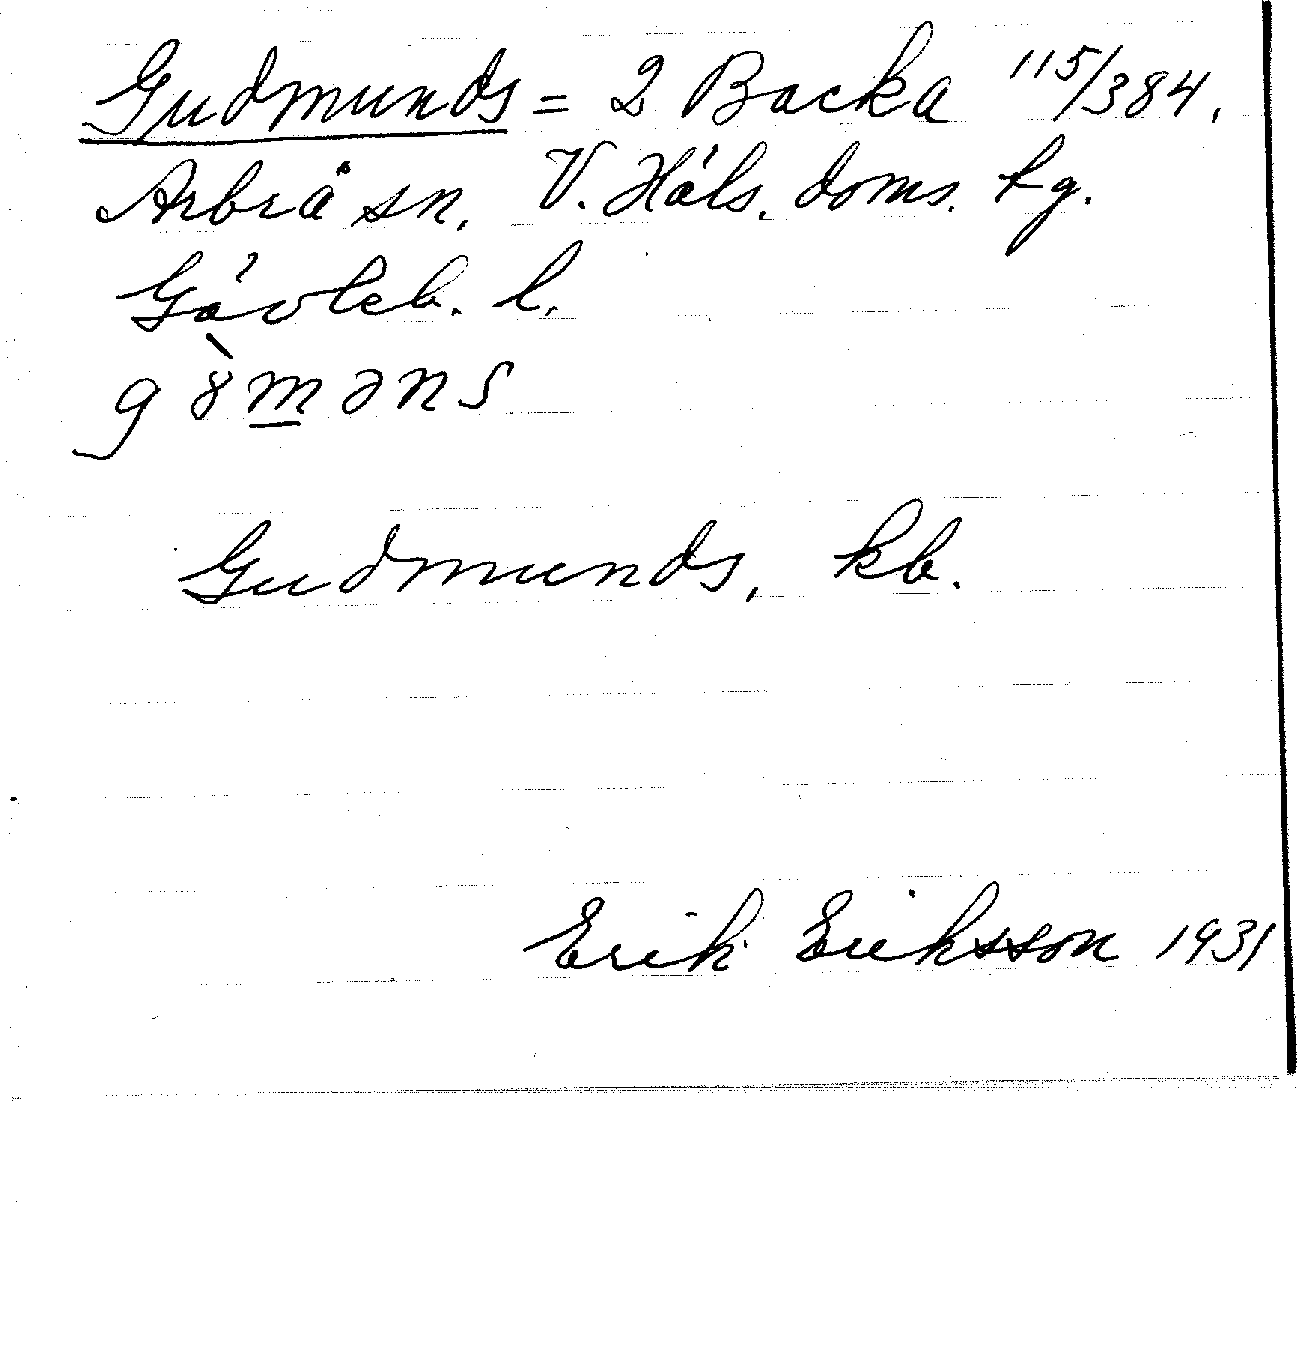 Gudmunds = 2 Backa 115/384.
Arbrå sn. V. Häls. doms. tg.
Gävleb. l.
g 8̀ m̲ ə n s
Gudmunds, kb.
Erik Eriksson 1931